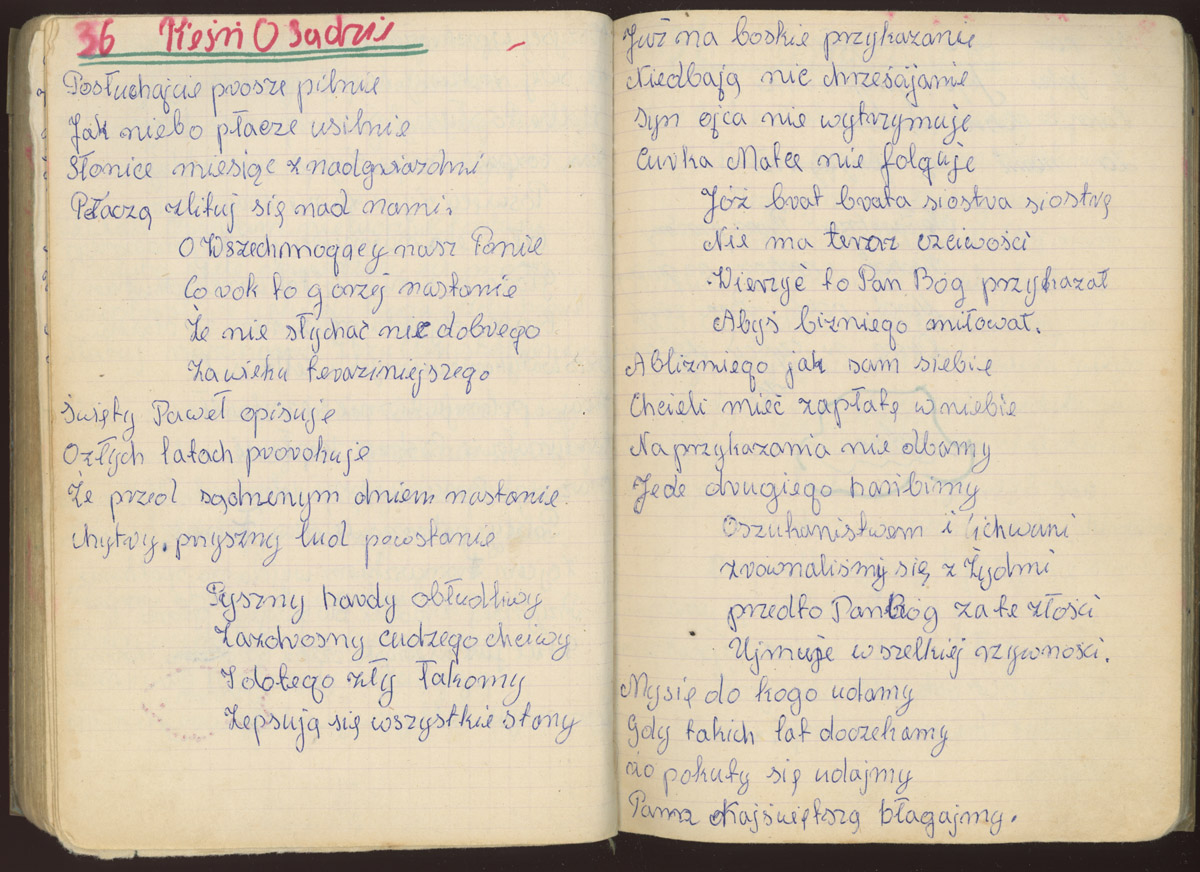 36 Pieśń O Sądzie
Posłuchajcie prosze pilnie
Jak niebo płacze usilnie
Słonice miesiąc z nadgwiazdmi
Płaczą zlituj się nad nami.
O Wszechmogącey nasz Panie
Co rok to gorzej nastanie
Że nie słychać nic dobrego
Za wieku teraziniejszego
Święty Paweł opisuje
O złych latach prorokuje
Że przed sądnenym dniem nastanie
chytry, pryszny lud powstanie
Pyszny hardy obłudliwy
Zazdrosny cudzego chciwy
I dotego zły łakomy
Zepsują się wszystkie stony
Już na boskie przykazanie
Niedbają nic chrześcijanie
Syn ojca nie wytrzymuje
Curka Matce nie folguje
Jóż brat brata siostra siostrę
Nie ma teraz czciwości
Wierzyć to Pan Bóg przykazał
Abyś bizniego miłował.
A blizmiego jak sam siebie
Chcieli mieć zapłatę w niebie
Na przykazania nie dbamy
Jede drugiego hanbimy
Oszukanistwem i lichwani
zrównaliśmy się z Żydmi
przedto Pan Bóg za te złości
Ujmuje wszelkiej rzywności.
My się do kogo udamy
Gdy takich lat doczekamy
Do pokuty się udajmy
Panna Najświętszą błagajmy.